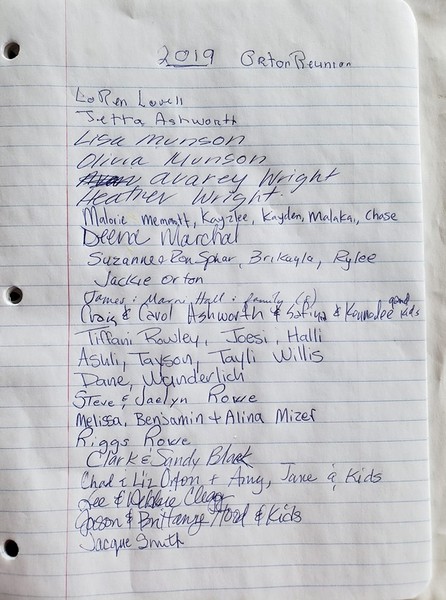 2019 Orton Reunion
LaRen Lovell
Jetta Ashworth
Lisa Munson
Olivia Munson
Avarey Wright
Heather Wright.
Malorie Memmott, Kayzlee, Kayden, Malakai, Chase
Deena Marchal
Suzanne & Ron Sphar, Brikayla, Rylee
Jackie Orton
James & Hall & family
Craig & Carol Ashworth & & Kennadee grand kids
Tiffani Rowley, Joesi, Halli
Ashli, Tayson, Tayli Willis
Dane, Wunderlich
Steve & Jaelyn Rowe
Melissa, Benjamin + Alina Mizer
Riggs Rowe
Clark & Sandy Black
Chad & Liz Orton + Amy, Jane & Kids
Lee & Debbie Clegg
Jason & Brittany Hood & Kids
Jacque Smith